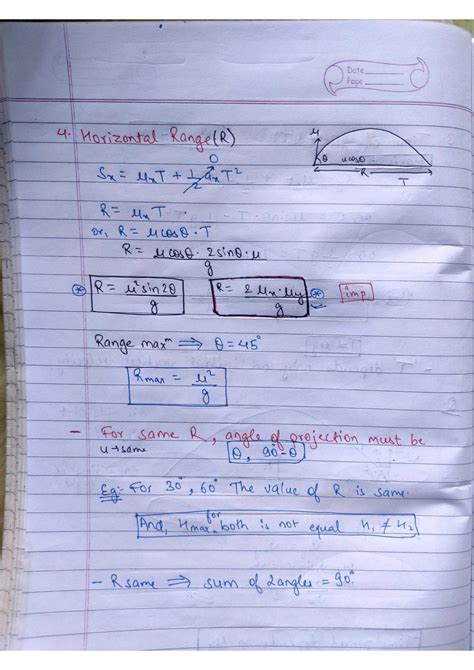 Date
Page
4. Horizontal Range (R)
u
θ
ucosθ
R
T
0
Sx = uxT + 1/2 axT²
R = uxT
or, R = ucosθ · T
R = ucosθ · 2sinθ · u / g
* R = u²sin2θ / g
R = 2ux·uy / g * imp
Range maxᵐ ⇒ θ = 45°
Rmax = u² / g
- For same R, angle of projection must be
u→same θ, 90°-θ
Eg:- For 30°, 60° The value of R is same.
And, Hmax. for both is not equal H₁ ≠ H₂
- R same ⇒ sum of 2angles = 90°